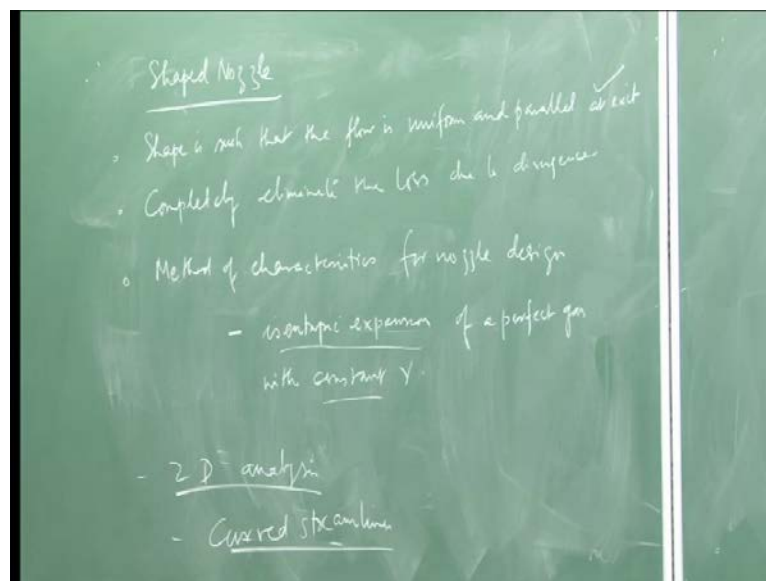 Shaped Nozzle
• Shape is such that the flow is uniform and parallel at exit ✓
• Completely eliminate the loss due to divergence.
• Method of characteristics for nozzle design
- isentropic expansion of a perfect gas
with constant γ.
- 2D - analysis
- Curved streamlines